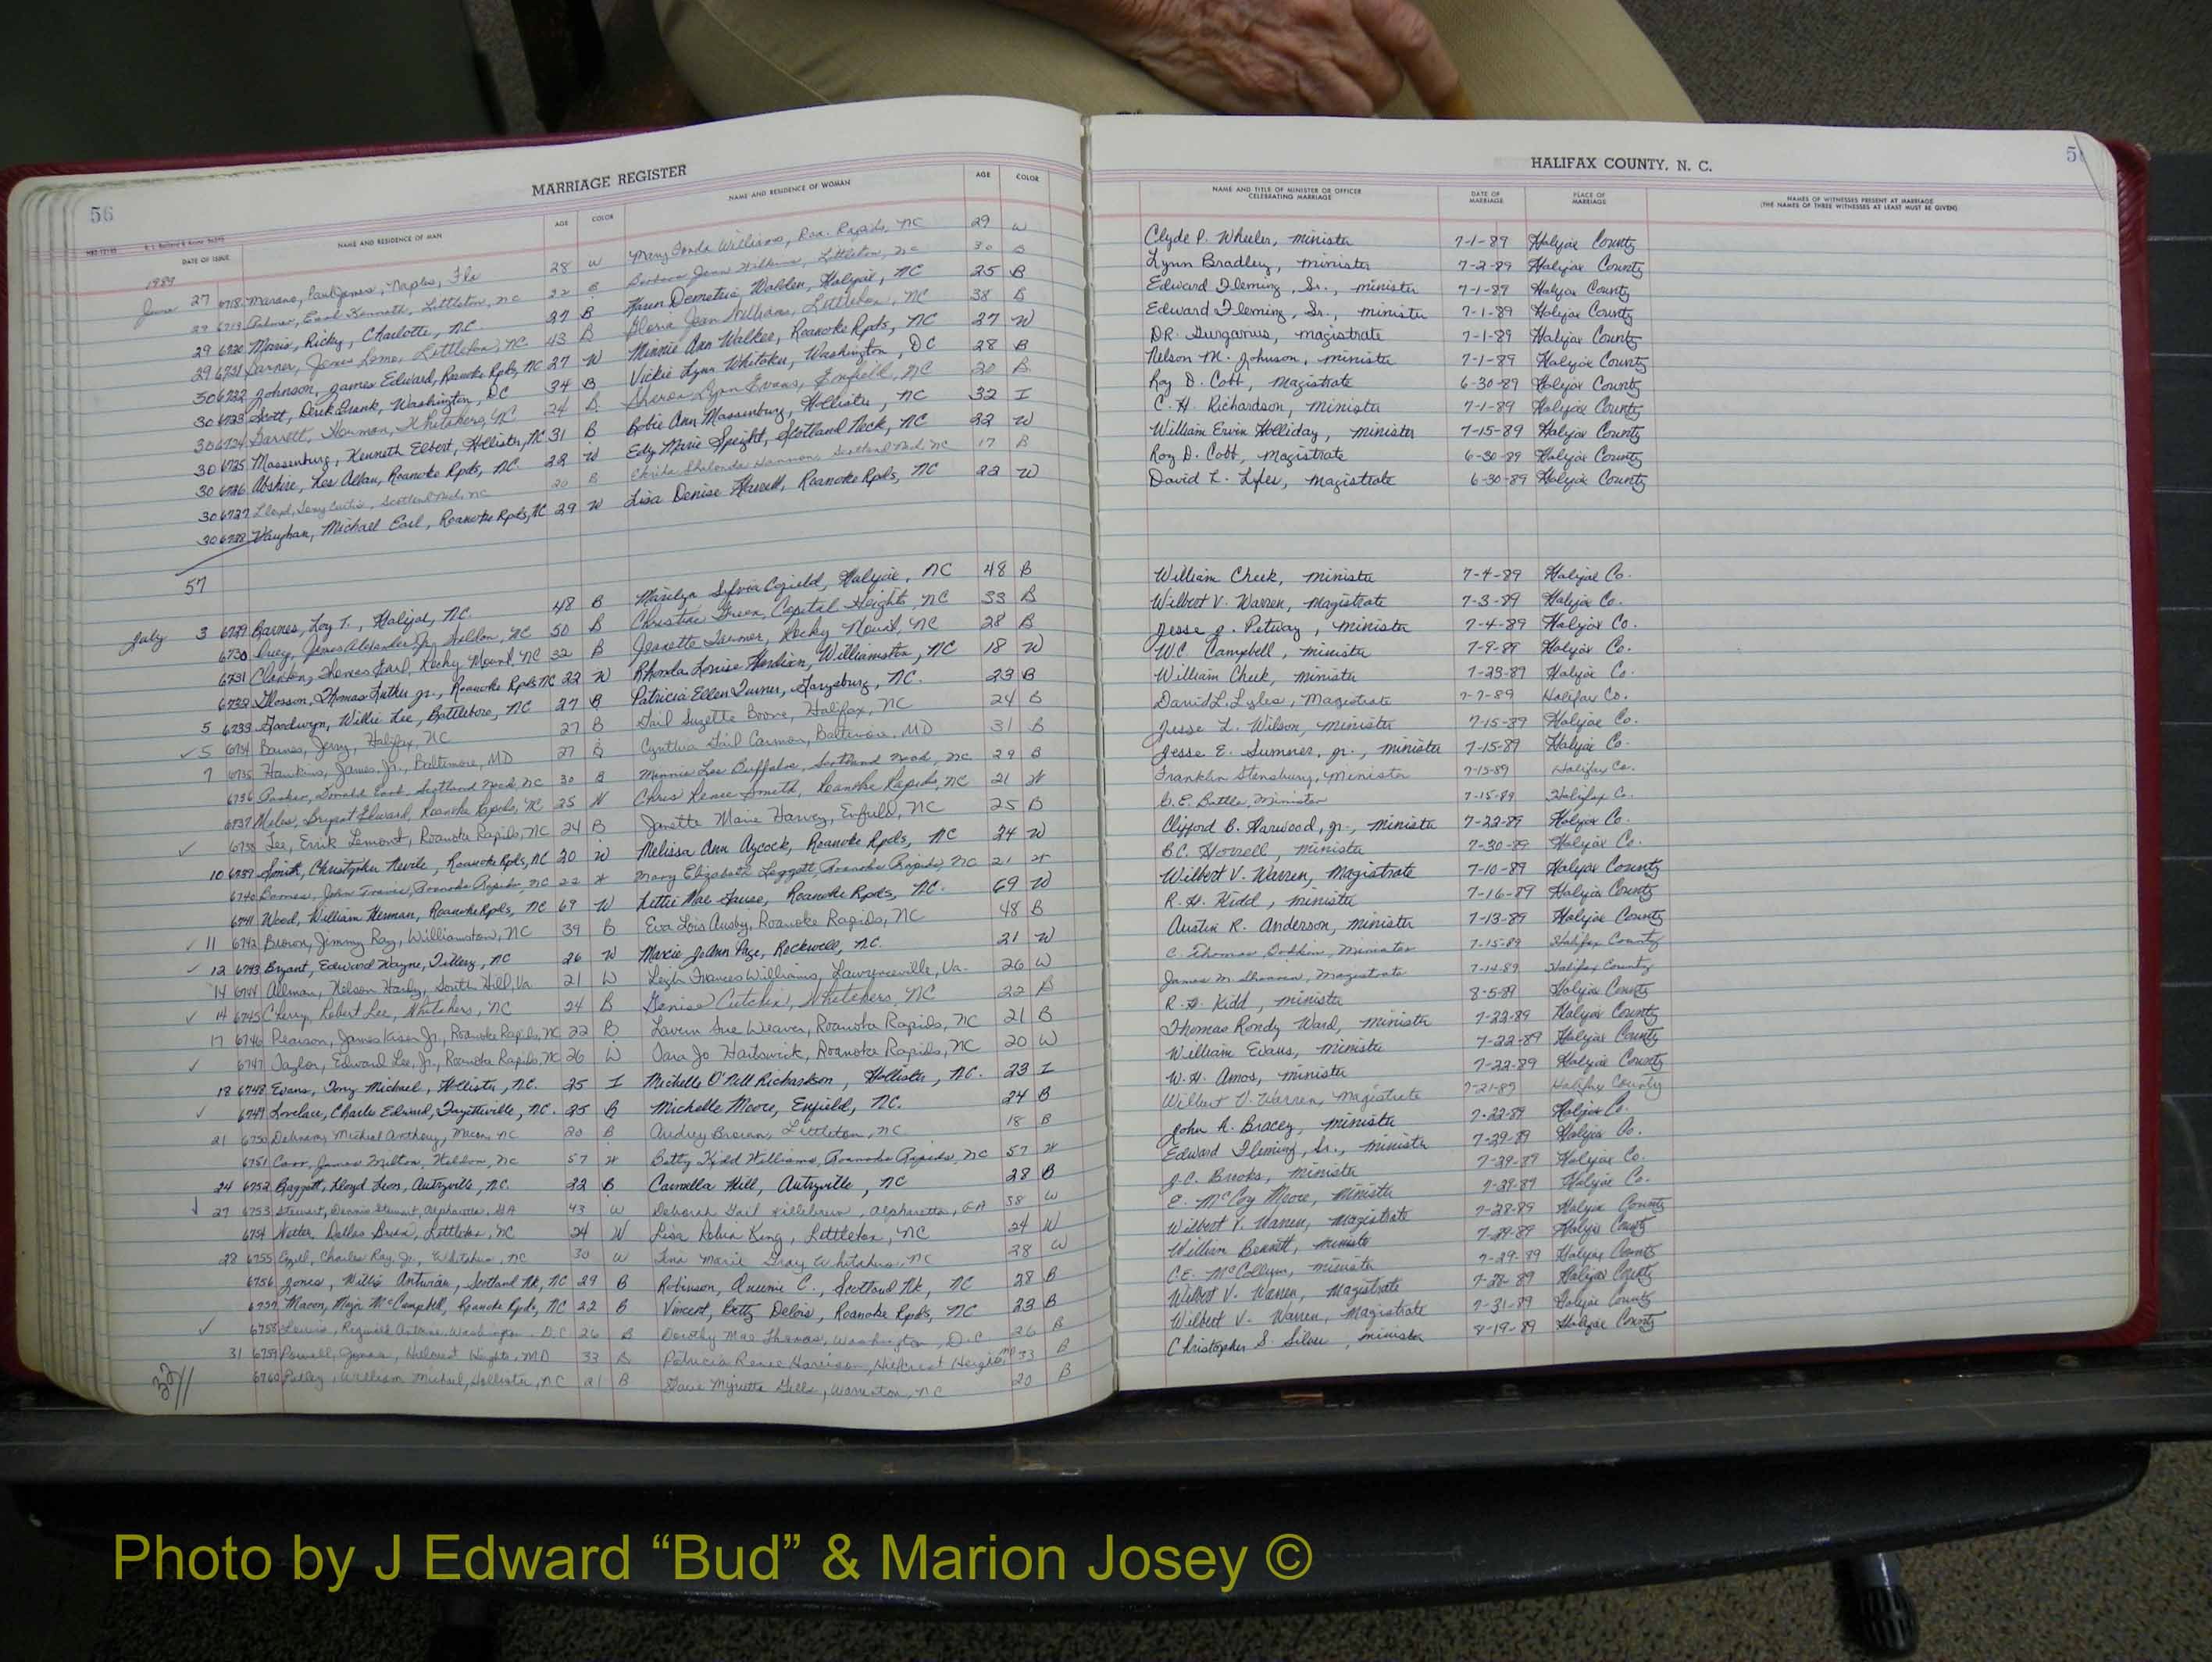 MARRIAGE REGISTER
56
DATE OF ISSUE NAME AND RESIDENCE OF MAN AGE COLOR NAME AND RESIDENCE OF WOMAN AGE COLOR
1989
June 27 6718 Marano, Paul James, Naples, Fla 28 W Mary Williams, Roa. Rapids, NC 29 W
29 6719 Palmer, Earl Kenneth, Littleton, NC 22 B Barbara Jean Wilkins, Littleton, NC 30 B
29 6720 Ricky, Charlotte, NC. 27 B Demetria Walden, Halifax, NC 25 B
29 6721 Littleton, NC 43 B Gloria Jean Williams, Littleton, NC 38 B
30 6722 Johnson, James Edward, Roanoke Rpds, NC 27 W Minnie Ann Walker, Roanoke Rpds, NC 27 W
30 6723 Scott, Derek Frank, Washington, DC 34 B Vickie Lynn Whitaker, Washington, DC 28 B
30 6724 Garrett, Herman, Whitakers, NC 24 B Lynn Evans, Enfield, NC 20 B
30 6725 Massenburg, Kenneth Elbert, Hollister, NC 31 B Bobie Ann Massenburg, Hollister, NC 32 I
30 6726 Abshire, Les Allan, Roanoke Rpds, NC. 22 W Edy Marie Speight, Scotland Neck, NC 22 W
30 6727 Lloyd, Tony Curtis, Scotland Neck, NC 20 B Scotland Neck, NC 17 B
30 6728 Vaughan, Michael Earl, Roanoke Rpds, NC 29 W Lisa Denise Harrell, Roanoke Rpds, NC 22 W
57
July 3 6729 Barnes, Loy T., Halifax, NC. 48 B Marilyn Sylvia Cofield, Halifax, NC 48 B
6730 James Alexander Jr, Weldon, NC 50 B Christine Green, Capital Heights, NC 33 B
6731 Thomas Earl, Rocky Mount, NC 32 B Jeanette Rocky Mount, NC 28 B
6732 Thomas Luther Jr., Roanoke Rpds NC 22 W Rhonda Louise Hardison, Williamston, NC 18 W
5 6733 Goodwyn, Willie Lee, Battleboro, NC 27 B Patricia Ellen Turner, Garysburg, NC. 23 B
✓ 5 6734 Barnes, Jerry, Halifax, NC 27 B Gail Suzette Boone, Halifax, NC 24 B
7 6735 Hawkins, James, Jr., Baltimore, MD 27 B Cynthia Gail Carmon, Baltimore, MD 31 B
6736 Parker, Donald Earl, Scotland Neck NC 30 B Minnie Lee Buffaloe, Scotland Neck, NC 29 B
6737 Bryant Edward, Roanoke Rapids, NC 25 W Chris Renee Smith, Roanoke Rapids, NC 21 W
✓ 6738 Lee, Erick Lemont, Roanoke Rapids, NC 24 B Janette Marie Harvey, Enfield, NC 25 B
10 6739 Smith, Christopher Nevile, Roanoke Rpds, NC 20 W Melissa Ann Aycock, Roanoke Rpds, NC 24 W
6740 John Travis, Roanoke Rapids, NC 22 W Mary Elizabeth Leggett, Roanoke Rapids, NC 21 W
6741 Wood, William Herman, Roanoke Rpds, NC 69 W Lettie Mae House, Roanoke Rpds, NC. 69 W
✓ 11 6742 Brown, Jimmy Ray, Williamston, NC 39 B Eva Lois Ausby, Roanoke Rapids, NC 48 B
✓ 12 6743 Bryant, Edward Wayne, Tillery, NC 26 W Marcie JoAnn Page, Rockwell, NC. 21 W
14 6744 Allman, Nelson Hardy, South Hill, Va 21 W Leigh Frances Williams, Lawrenceville, Va. 26 W
✓ 14 6745 Cherry, Robert Lee, Whitakers, NC 24 B Denise Cutchin, Whitakers, NC 22 B
17 6746 Pearson, James Jr., Roanoke Rapids, NC 22 B Lavern Sue Weaver, Roanoke Rapids, NC 21 B
✓ 6747 Taylor, Edward Lee, Jr., Roanoke Rapids, NC 26 W Tara Jo Hartswick, Roanoke Rapids, NC 20 W
18 6748 Evans, Tony Michael, Hollister, NC. 25 I Michelle O'Nell Richardson, Hollister, NC. 23 I
✓ 6749 Lovelace, Charles Edward, Fayetteville, NC. 25 B Michelle Moore, Enfield, NC. 24 B
21 6750 Michael Anthony, Macon, NC 20 B Audrey Brown, Littleton, NC 18 B
6751 Carr, James Milton, Weldon, NC 57 W Betty Kidd Williams, Roanoke Rapids, NC 57 W
24 6752 Baggett, Lloyd Leon, Autryville, NC. 22 B Carnella Hill, Autryville, NC 28 B
27 6753 Stewart, Dennis Stewart, Alpharetta, GA 43 W Deborah Gail Killebrew, Alpharetta, GA 38 W
6754 Dallas Brian, Littleton, NC 24 W Lisa Robin King, Littleton, NC 24 W
28 6755 Ezzell, Charles Ray, Jr., Whitakers, NC 30 W Tina Marie Gray Whitakers, NC 28 W
6756 Jones, Willie Antwan, Scotland Nk, NC 29 B Robinson, Queenie C., Scotland Nk, NC 28 B
6757 Macon, Major McCampbell, Roanoke Rpds, NC 22 B Vincent, Betty Delois, Roanoke Rpds, NC 23 B
✓ 6758 Lewis, Washington, D.C 26 B Dorothy Mae Thomas, Washington, D.C 26 B
31 6759 Powell, James, Hillcrest Heights, MD 33 B Patricia Renee Harrison, Hillcrest Heights 33 B
6760 William Michael, Hollister, NC 21 B Mynette Gills, Warrenton, NC 20 B
32//
HALIFAX COUNTY, N. C.
NAME AND TITLE OF MINISTER OR OFFICER CELEBRATING MARRIAGE DATE OF MARRIAGE PLACE OF MARRIAGE NAMES OF WITNESSES PRESENT AT MARRIAGE
(THE NAMES OF THREE WITNESSES AT LEAST MUST BE GIVEN)
Clyde P. Wheeler, minister 7-1-89 Halifax County
Lynn Bradley, minister 7-2-89 Halifax County
Edward Fleming, Sr., minister 7-1-89 Halifax County
Edward Fleming, Sr., minister 7-1-89 Halifax County
DR. Gurganus, magistrate 7-1-89 Halifax County
Nelson M. Johnson, minister 7-1-89 Halifax County
Roy D. Cobb, Magistrate 6-30-89 Halifax County
C. H. Richardson, minister 7-1-89 Halifax County
William Ervin Holliday, minister 7-15-89 Halifax County
Roy D. Cobb, magistrate 6-30-89 Halifax County
David L. Lyles, magistrate 6-30-89 Halifax County
William Cheek, minister 7-4-89 Halifax Co.
Wilbert V. Warren, Magistrate 7-3-89 Halifax Co.
Jesse J. Petway, minister 7-4-89 Halifax Co.
W.C. Campbell, minister 7-9-89 Halifax Co.
William Cheek, minister 7-23-89 Halifax Co.
David L. Lyles, Magistrate 7-7-89 Halifax Co.
Jesse L. Wilson, minister 7-15-89 Halifax Co.
Jesse E. Sumner, Jr., minister 7-15-89 Halifax Co.
Franklin Stansbury, Minister 7-15-89 Halifax Co.
Battle, Minister 7-15-89 Halifax Co.
Clifford B. Harwood, Jr., minister 7-22-89 Halifax Co.
B.C. Horrell, minister 7-30-89 Halifax Co.
Wilbert V. Warren, Magistrate 7-10-89 Halifax County
R. H. Kidd, minister 7-16-89 Halifax County
Austin R. Anderson, minister 7-13-89 Halifax County
C. Thomas Minister 7-15-89 Halifax County
James M. Shearin, Magistrate 7-14-89 Halifax County
R. H. Kidd, minister 8-5-89 Halifax County
Thomas Rondy Ward, minister 7-22-89 Halifax County
William Evans, minister 7-22-89 Halifax County
W. H. Amos, minister 7-22-89 Halifax County
Wilbert V. Warren, Magistrate 7-21-89 Halifax County
John A. Bracey, minister 7-22-89 Halifax Co.
Edward Fleming, Sr., minister 7-29-89 Halifax Co.
J.C. Brooks, minister 7-29-89 Halifax Co.
E. McCoy Moore, minister 7-29-89 Halifax Co.
Wilbert V. Warren, Magistrate 7-28-89 Halifax County
William Bennett, minister 7-29-89 Halifax County
C.E. McCollum, minister 7-29-89 Halifax County
Wilbert V. Warren, Magistrate 7-28-89 Halifax County
Wilbert V. Warren, Magistrate 7-31-89 Halifax County
Christopher S. Silver, minister 8-19-89 Halifax County
Photo by J Edward “Bud” & Marion Josey ©